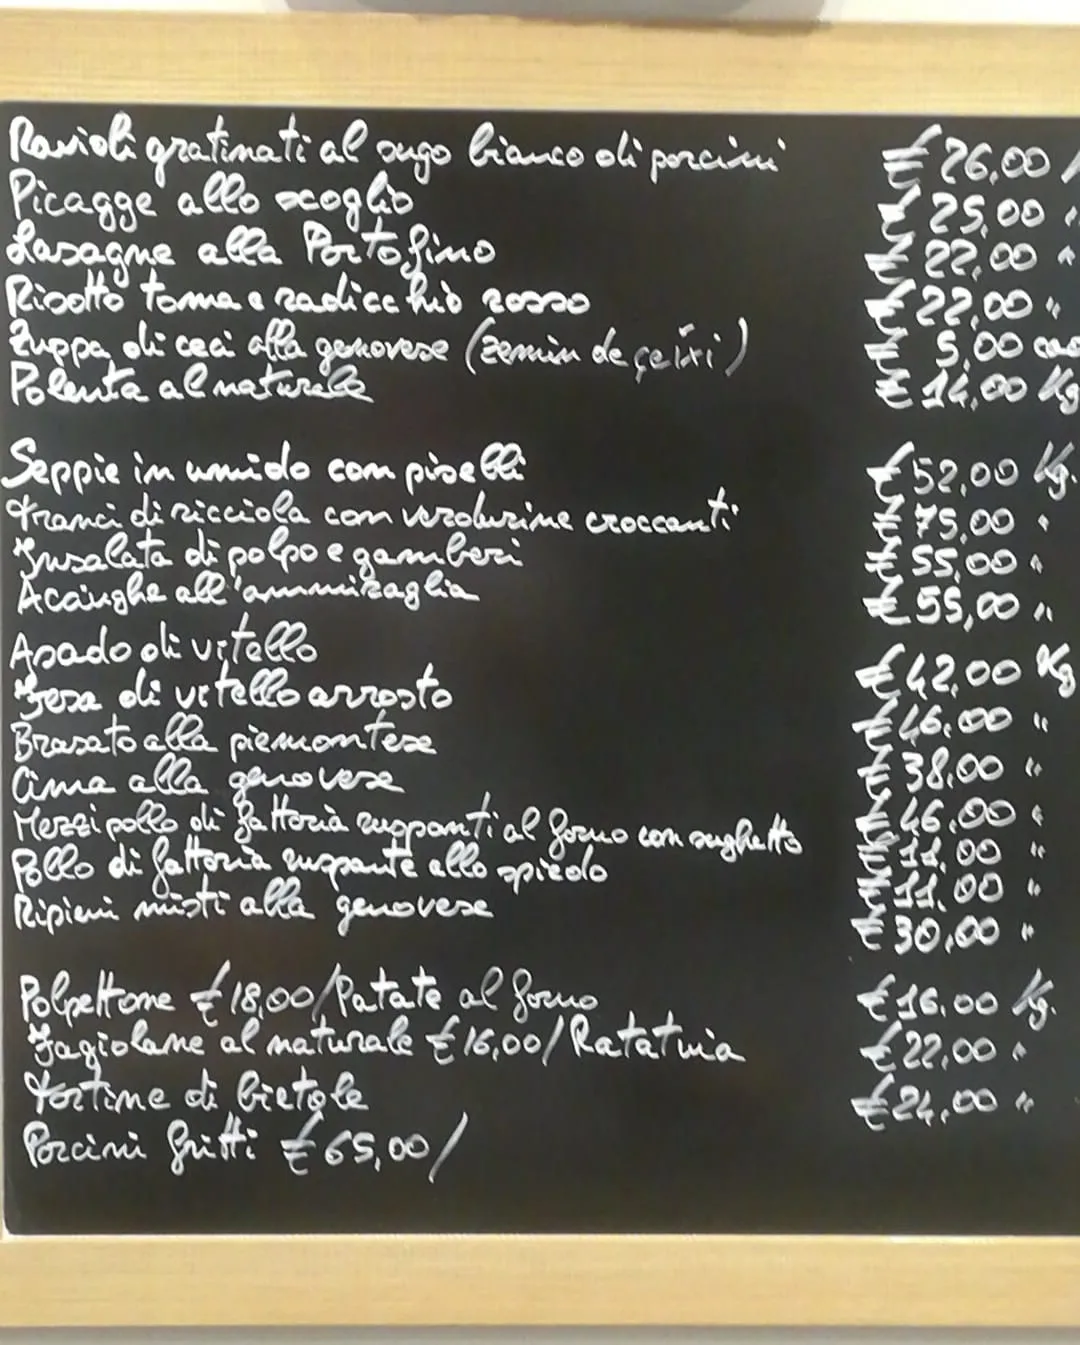 Ravioli gratinati al sugo bianco di porcini € 26,00
Picagge allo scoglio € 25,00 "
Lasagne alla Portofino € 22,00 "
Risotto toma e radicchio rosso € 22,00 "
Zuppa di ceci alla genovese (zemin de çeixi) € 5,00 cad
Polenta al naturale € 14,00 Kg
Seppie in umido con piselli € 52,00 Kg.
Tranci di ricciola con verdurine croccanti € 75,00 "
Insalata di polpo e gamberi € 55,00 "
Acciughe all'ammiraglia € 55,00 "
Asado di vitello € 42,00 Kg
Fesa di vitello arrosto € 46,00 "
Brasato alla piemontese € 38,00 "
Cima alla genovese € 46,00 "
Mezzi pollo di fattoria ruspanti al forno con sughetto € 11,00 "
Pollo di fattoria ruspante allo spiedo € 11,00 "
Ripieni misti alla genovese € 30,00 "
Polpettone € 18,00/Patate al forno € 16,00 Kg.
Fagiolane al naturale € 16,00/Ratatuia € 22,00 "
Tortine di bietole € 24,00 "
Porcini fritti € 65,00/